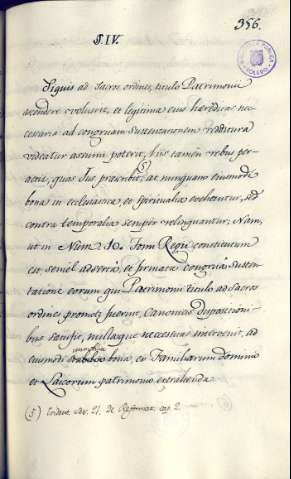 356.
§. IV.
Siquis ad Sacros ordines, titulo Patrimonii
ascendere voluerit, et legitima eius hereditas ne-
cessaria ad congruam Sustentationem
videatur admitti poterit, his tamen rebus per-
actis, quas Jus prescribit, (5) at nunquam eiusmodi
bona in ecclesiastica et spiritualia evehantur, sed
contra temporalia semper relinquantur; Nam,
ut in Núm. 10. Form. Regii constitutum
est, semel adserta, et firmata congrua Susten-
tatione eorum qui Patrimonii titulo ad sacros
ordines promoti fuerint, Canonicis Dispositioni-
bus satisfit, nullaque necessitas intervenit, ad
eiusmodi bona, ex Familiarum dominio
et Laicorum patrimonio extrahenda.
(5) Trident. Ses. 21. de Reformat. cap. 2.